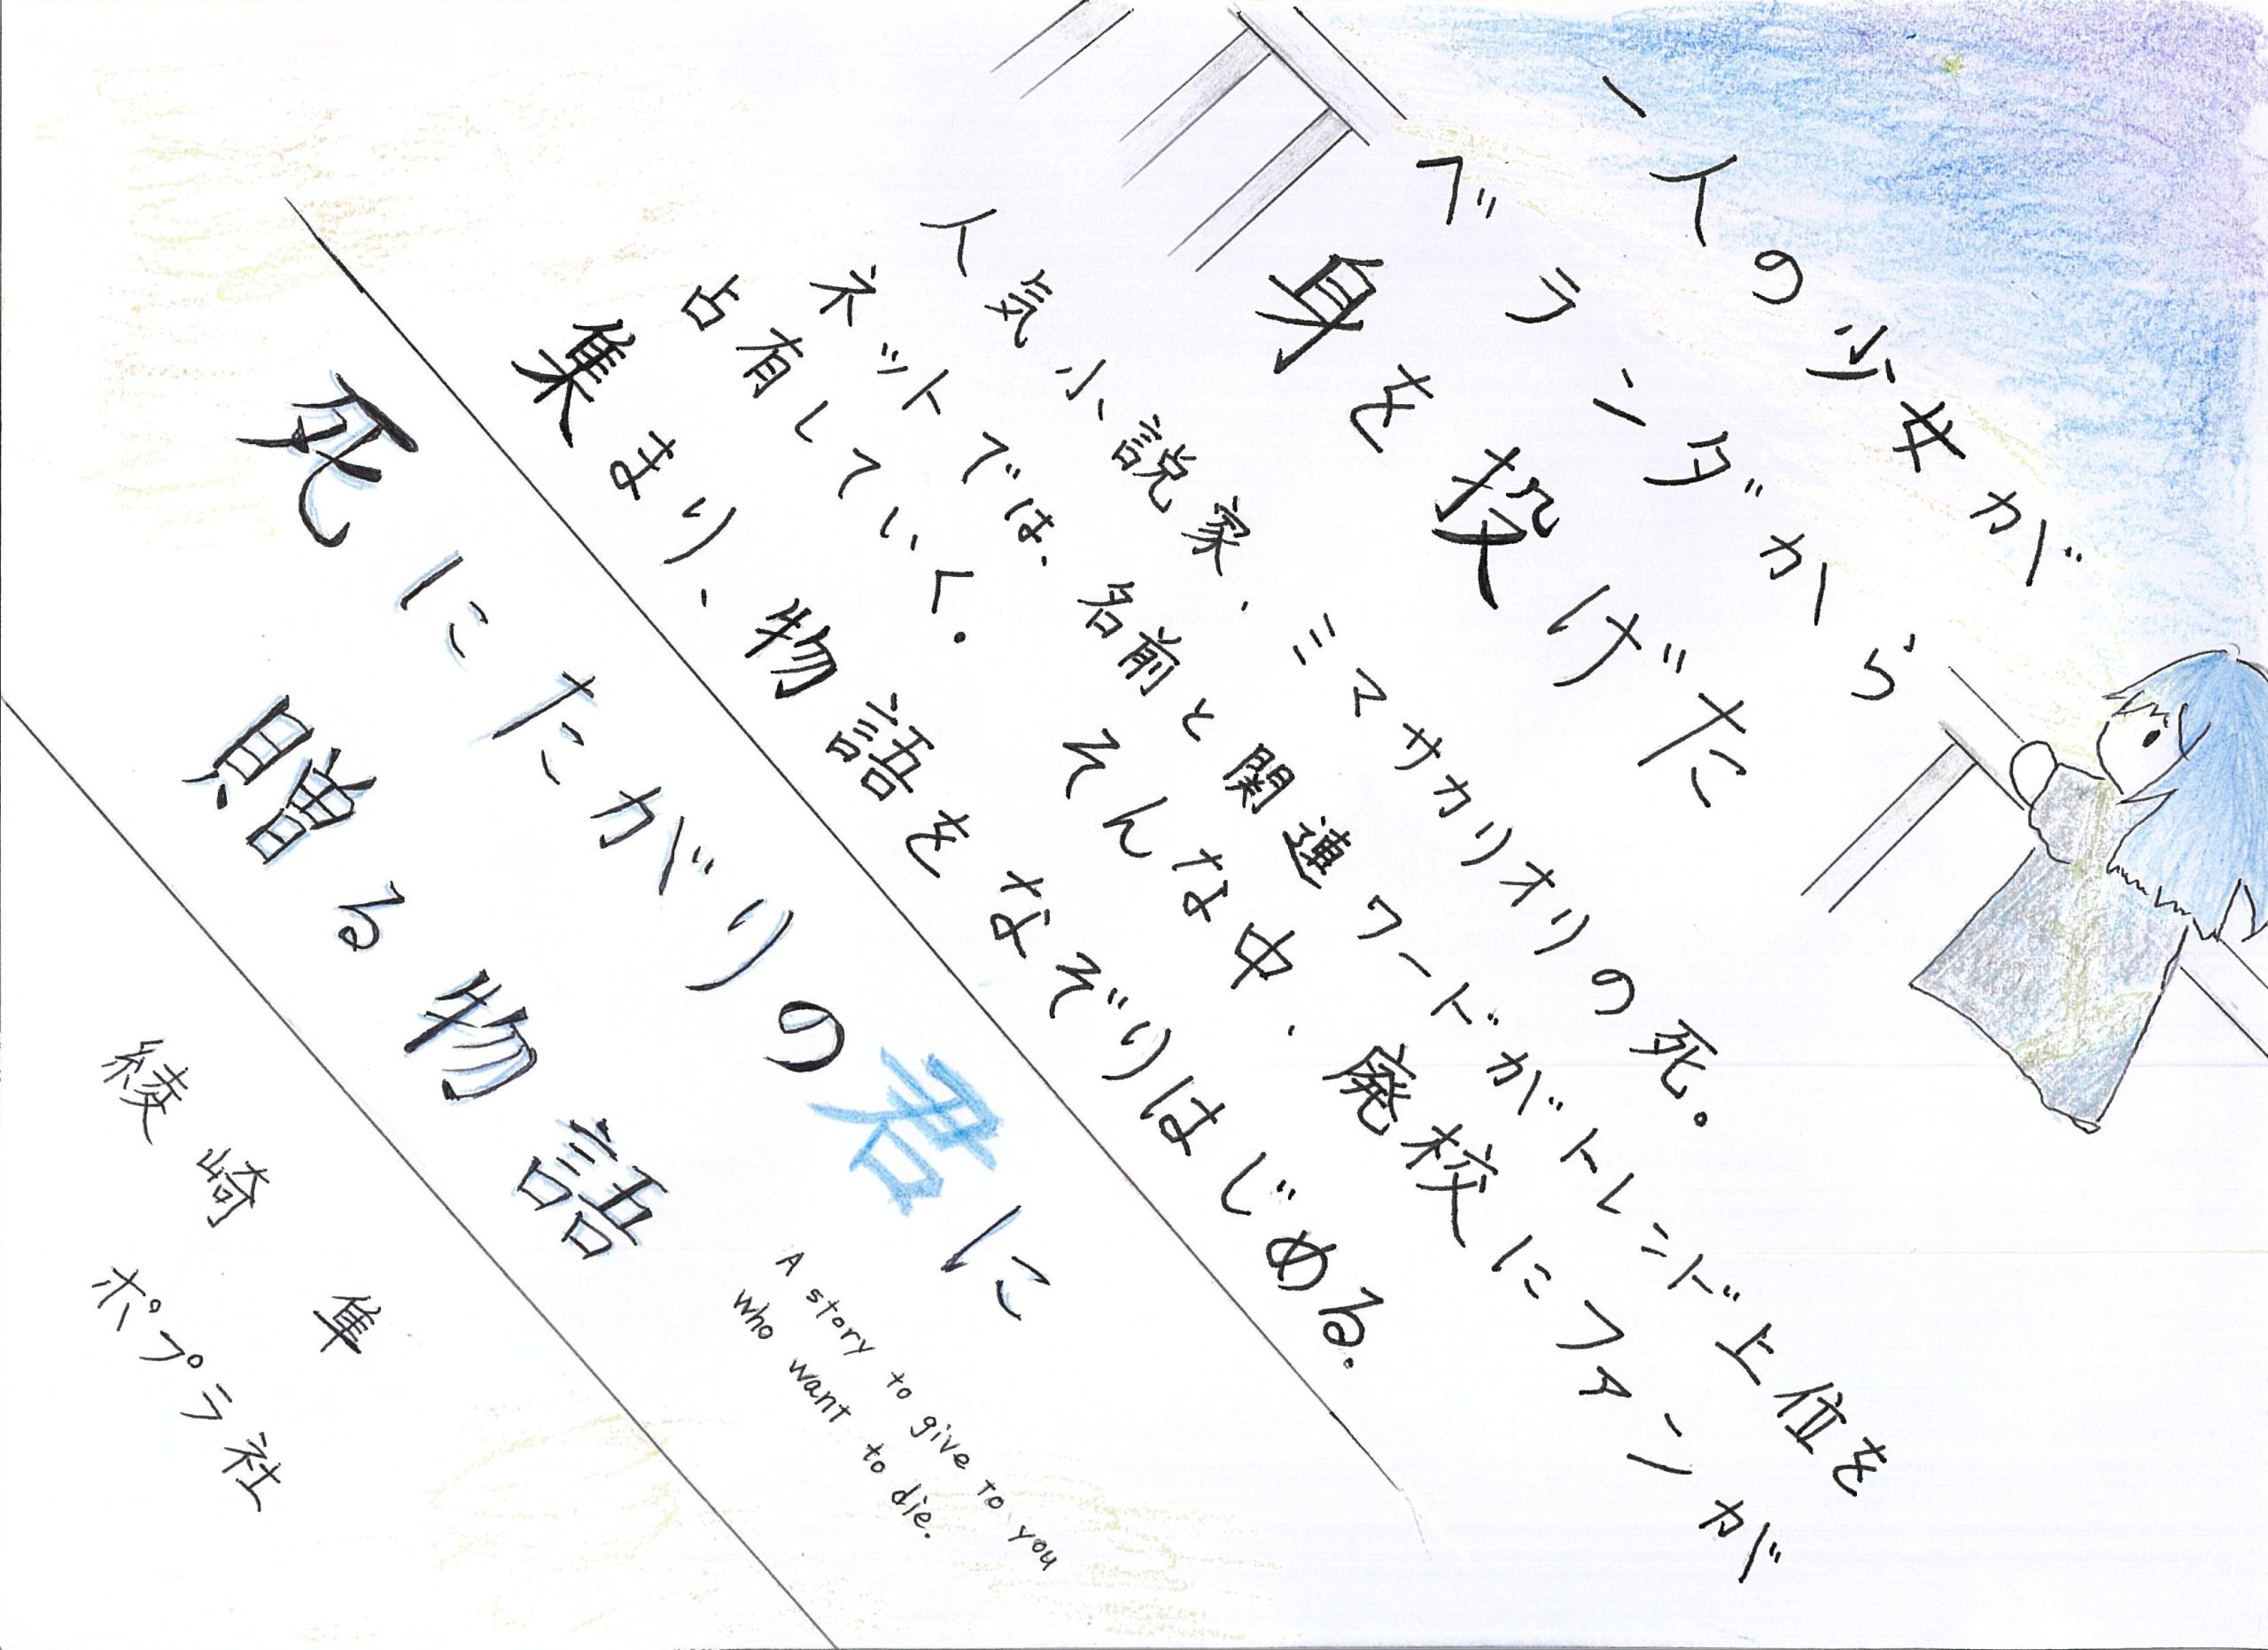 一人の少女が
ベランダから
身を投げた
人気小説家、ミマサカリオリの死。
ネットでは、名前と関連ワードがトレンド上位を
占有していく。そんな中、廃校にファンが
集まり、物語をなぞりはじめる。
死にたがりの君に
贈る物語
A story to give to you
who want to die.
綾崎 隼
ポプラ社